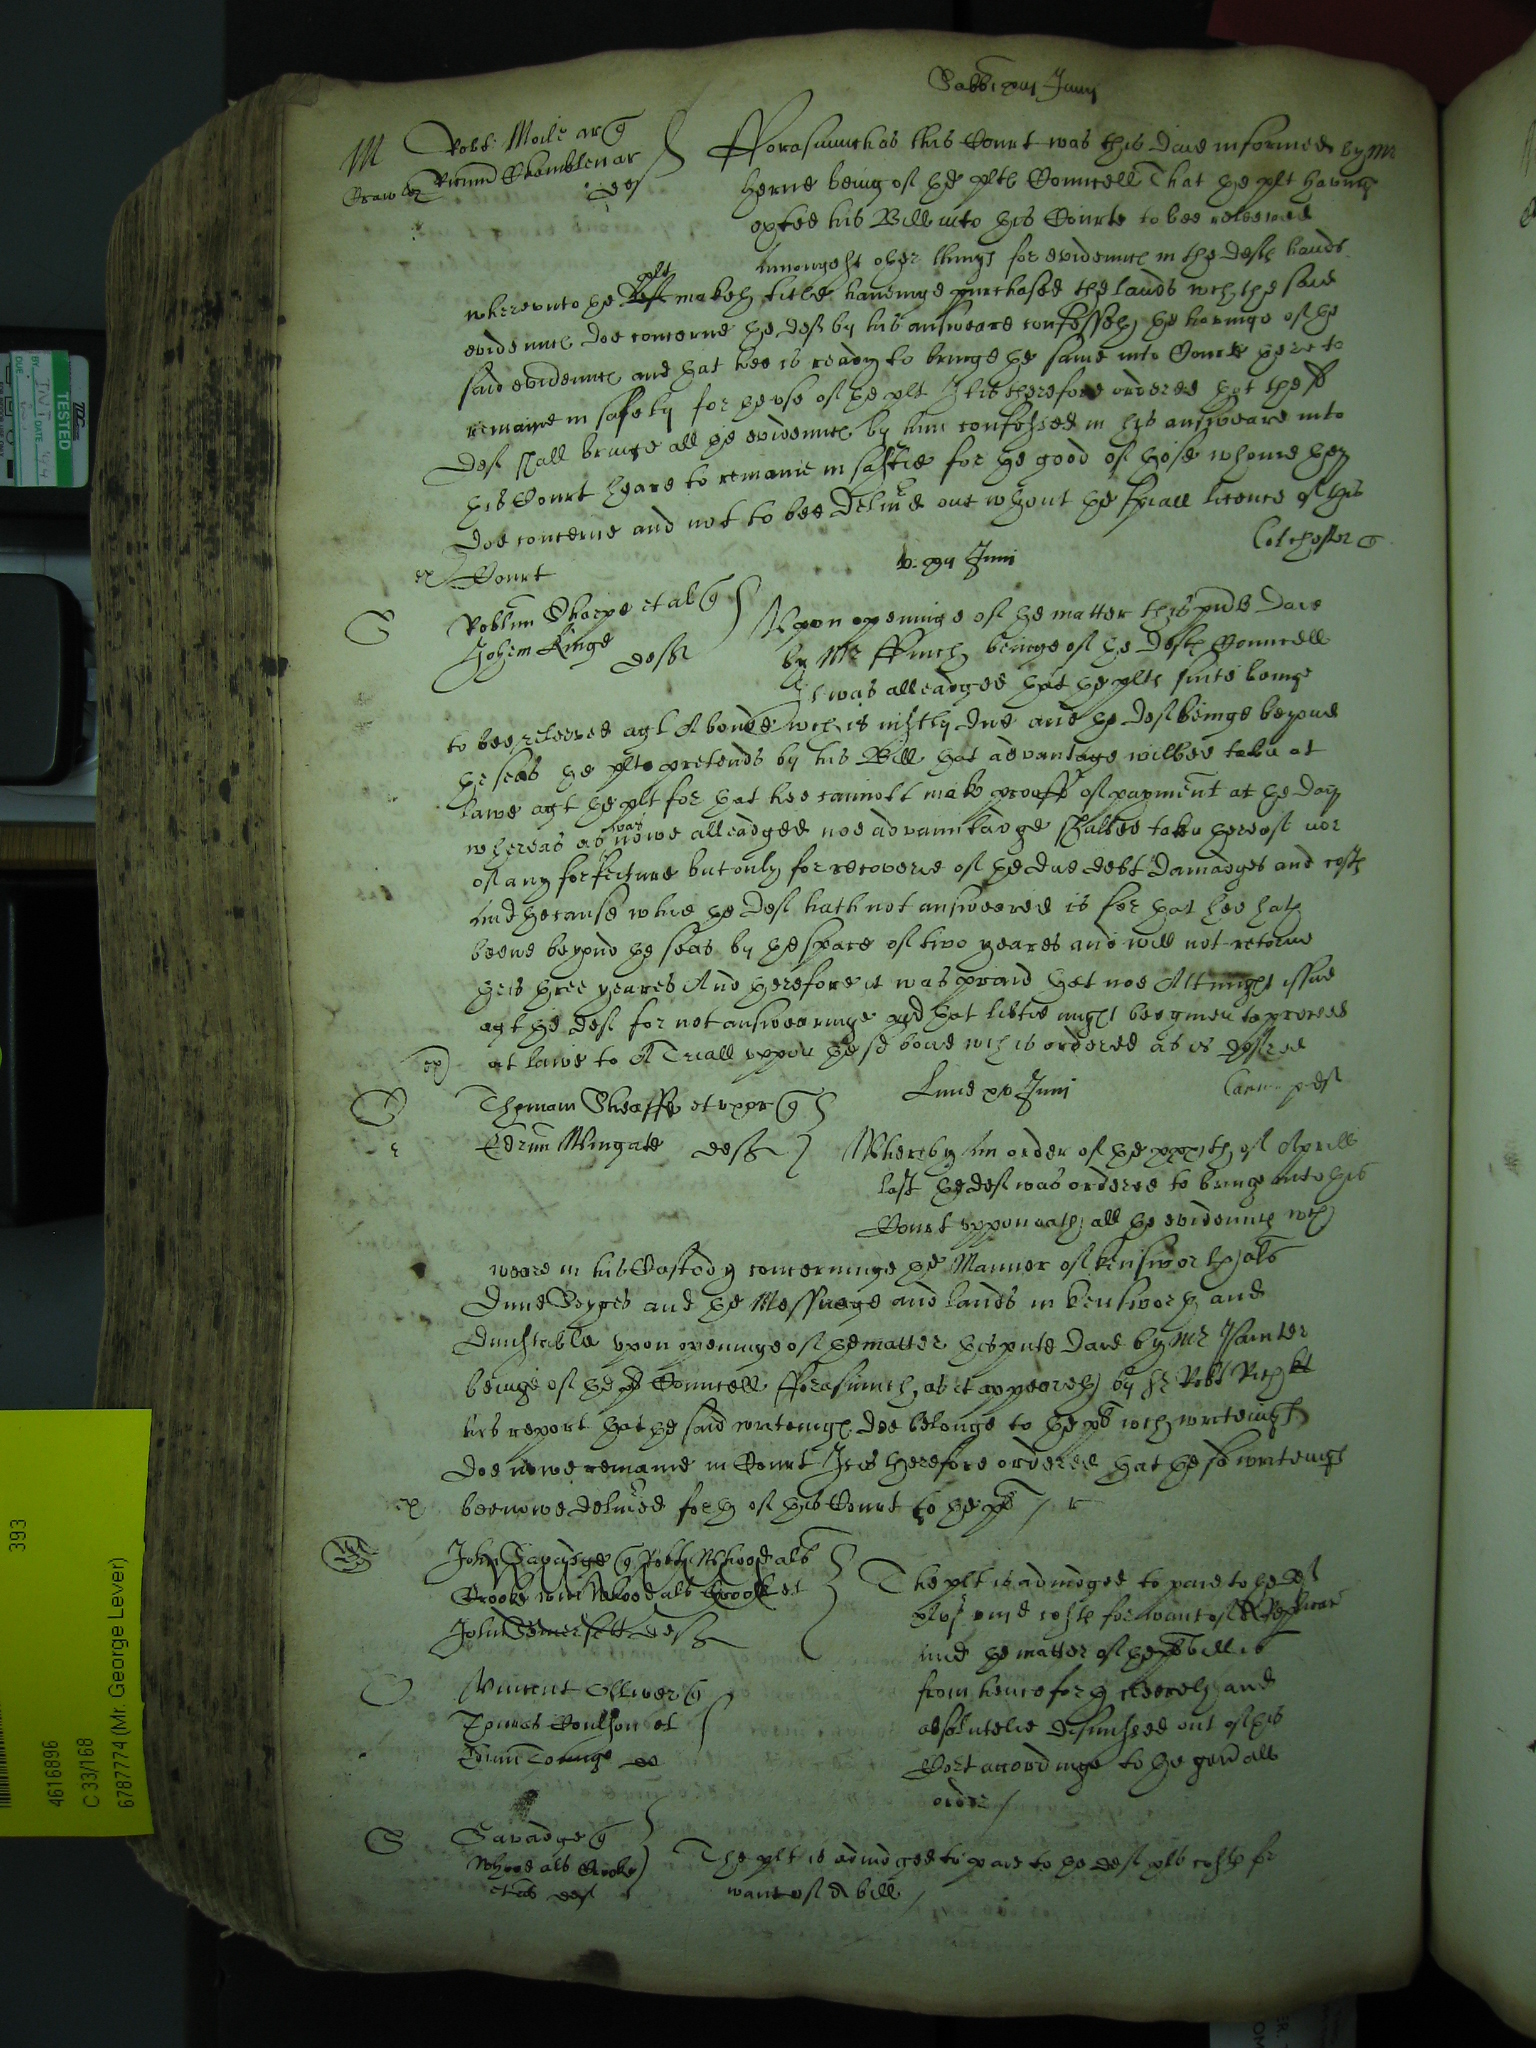 Sabbi xiiij Junij
M Robt Moile ar q
Ricum Chamblen ar
def
fforasmuch as this Court was this daie informed by Mr
herne being of ye plts Councell That ye plt having
exhibited his Bill into this Courte to bee releeved
amongest other things for evidences in the defts hands
plt
whereunto ye maketh title haveinge purchased the lands wch the said
evidences doe concerne ye def by his answeare confesseth ye havinge of ye
said evidences and yat hee is ready to bringe ye same into Courte here to
remayne in safety for ye use of ye plt It is therefore ordered yat the sd
def shall bringe all ye evidences by him confessed in his answeare into
this Court heare to remaine in saftie for ye good of those whome they
doe concerne and not to bee delivred out wthout ye spiall licence of this
ex Court
Junij
Colchester q
S Robtum Sharpe et al q
Johem Kinge
defts
Upon openinge of ye matter this pnte daie
by Mr ffinch beinge of ye defts Councell
It was alleadged yat ye plts suite being
to bee releeved agt A bond wch is justly due and ye def beinge beyond
ye seas ye plt pretends by his Bill yat advantage wilbee taken at
lawe agt ye plt for yat hee cannott make prouff of payment at ye day
was
whereas as nowe alleadged noe advanntadge shalbee taken thereof nor
of any forfeiture but only for recoverie of ye due debt damadges and costs
And ye cause whie ye def hath not answeared is for yat hee hath
beene beyond ye seas by ye space of two yeares and will not retorne
this three yeares And therefore it was praid yat noe Attachmt issue
agt ye def for not answearinge and yat libtie might bee given to proceed
ex at lawe to A Triall uppon ye sd bond wch is ordered as is desired
Lune xvj Junij
S Thomam Sheaffe et uxor q
Edrum Wingate defts
Whereby an order of ye xxxth of Aprill
last ye def was ordered to bringe into this
Court uppon oath all ye evidences wch
weare in his Custody concerninge ye Manner of kensworth als
and ye Messuage and lands in kensworth and
dunstable upon openinge of ye matter this pnte daie by Mr
beinge of ye pt Councell fforasmuch as it appeareth by Sr Robt Rich kt
his report yat ye said writeings doe belonge to ye pt wch writeings
doe nowe remaine in Court It is therefore ordered yat ye sd writeings
ex bee nowe delivred forth of this Court to ye pt
John Savadge q Robtu Whood als
Crooke Whood als Crooke et
John Somersett defts
The plt is adiudged to paie to ye def
xls costs for want of A
And ye matter of ye bill is
from henceforth cleerely and
absolutelie dismissed out of this
Cort accordinge to ye gerall
order
Vincent Olliver q
Thomas Coulson et
def
S Savadge q
Whood als Crooke
et als def
The plt is adiudged to paie to ye def xls costs for
want of A bill
TESTED
BY: INIT
DATE 4/4
DUE
393
4616896
C 33/168
6787774 (Mr. George Lever)